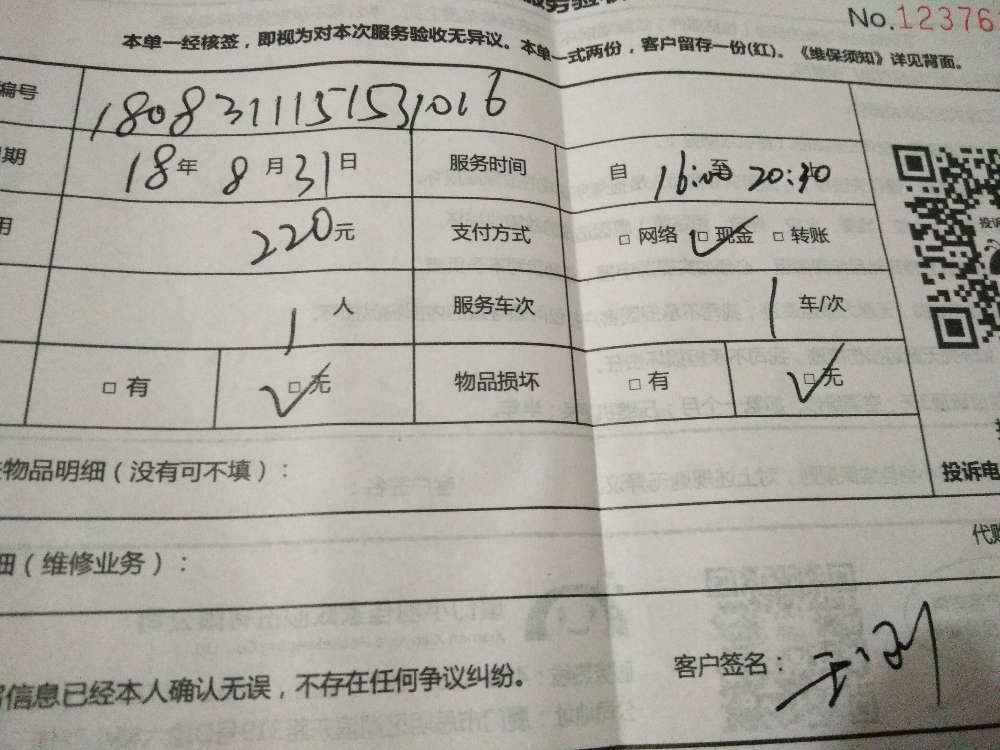 No.12376
本单一经核签，即视为对本次服务验收无异议。本单一式两份，客户留存一份(红)。《维保须知》详见背面。
编号 1808311151531016
期 18年 8月31日 服务时间 自 16:00至 20:40
220元 支付方式 □ 网络 □ 现金 □ 转账
1 人 服务车次 1 车/次
□ 有 □ 无 物品损坏 □ 有 □ 无
物品明细（没有可不填）：
投诉电
代购
细（维修业务）：
客户签名：
信息已经本人确认无误，不存在任何争议纠纷。